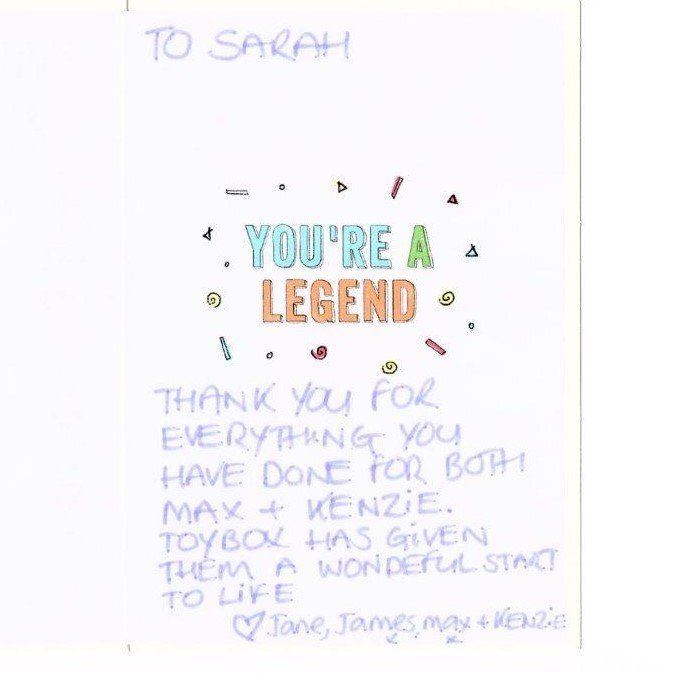 TO SARAH
YOU'RE A
LEGEND
THANK YOU FOR
EVERYTHING YOU
HAVE DONE FOR BOTH
MAX + KENZIE.
TOYBOX HAS GIVEN
THEM A WONDEFUL START
TO LIFE
♡ Jane, James, max + KENZIE
x x